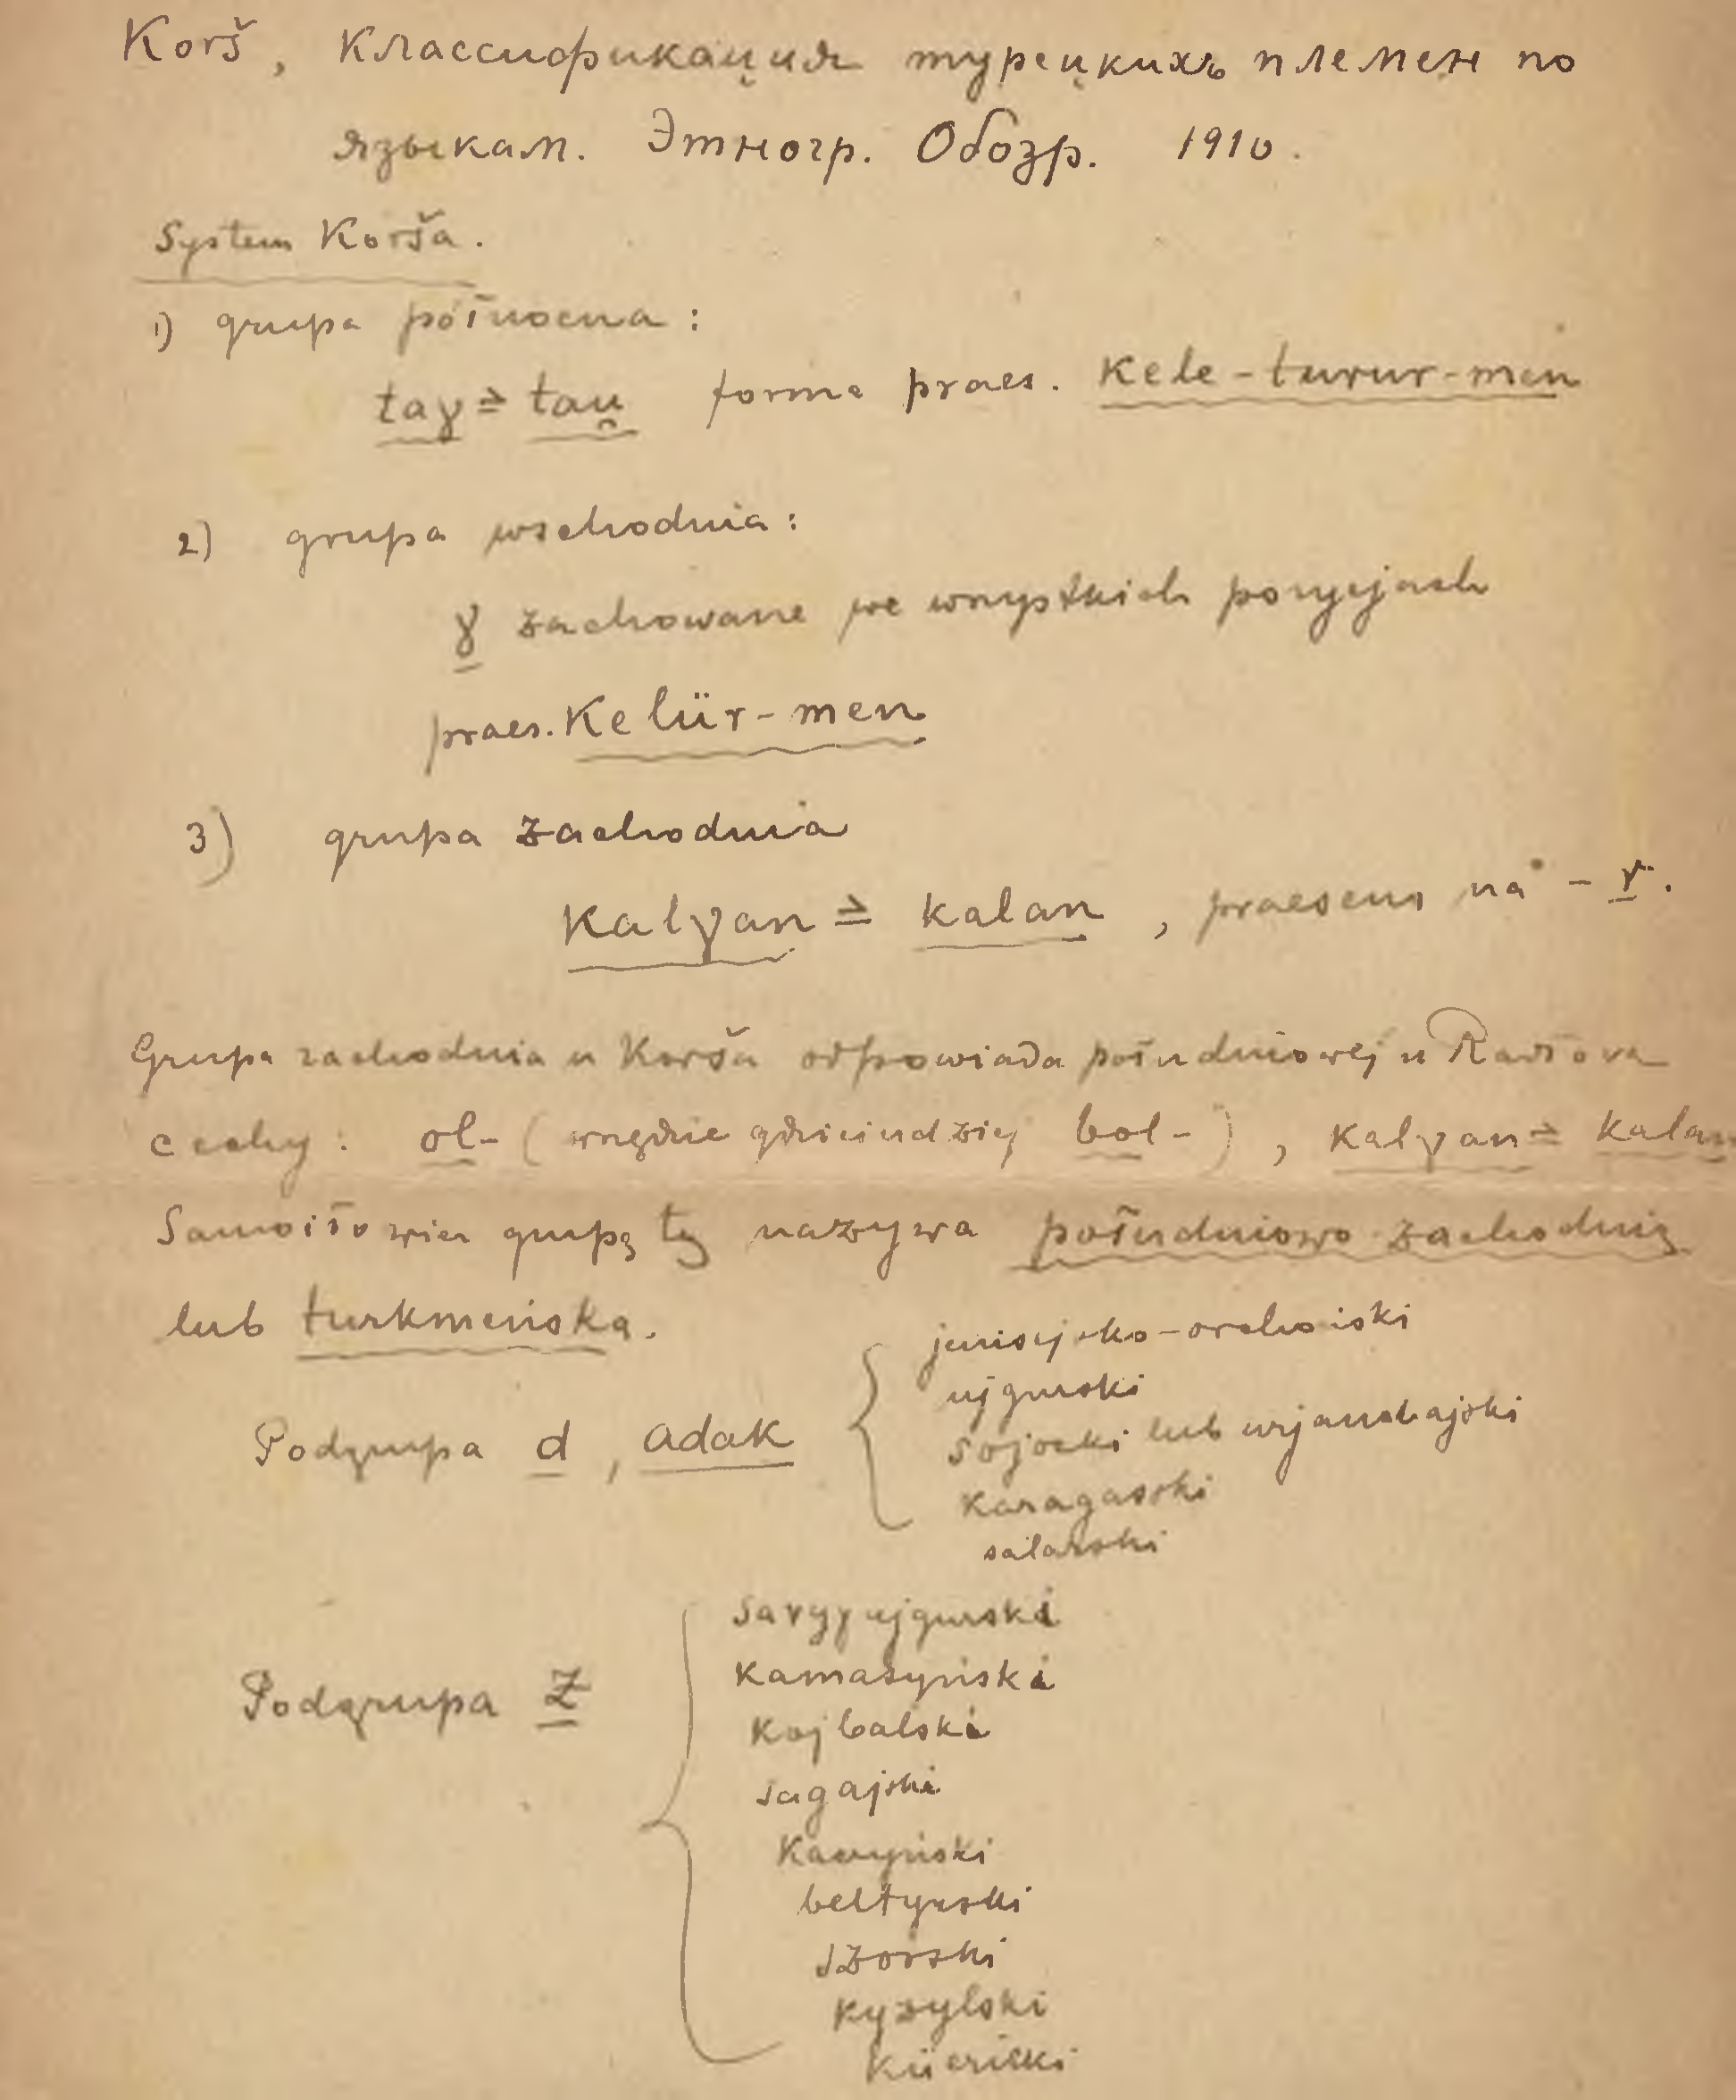 Korš, Классификация турецкихъ племен по
языкам. Этногр. Обозр. 1910.
System Korša.
1) grupa północna:
taγ ≥ tau̯ forma praes. kele-turur-men
2) grupa wschodnia:
γ zachowane we wszystkich pozycjach
praes. kelür-men
3) grupa zachodnia
kalγan ≥ kalan, praesens na -r.
Grupa zachodnia u Korša odpowiada południowej u Radłova
cechy: ol- (wszędzie gdzieindziej bol-), kalγan ≥ kalan
Samoiłowicz grupę tę nazywa południowo-zachodnią
lub turkmeńską.
Podgrupa d, adak
jenisejsko-orchoński
ujgurski
sojocki lub urjanchajski
karagaski
salarski
Podgrupa z
saryγ ujgurski
kamasyński
kojbalski
sagajski
kaczyński
beltyrski
szorski
kyzylski
küericki